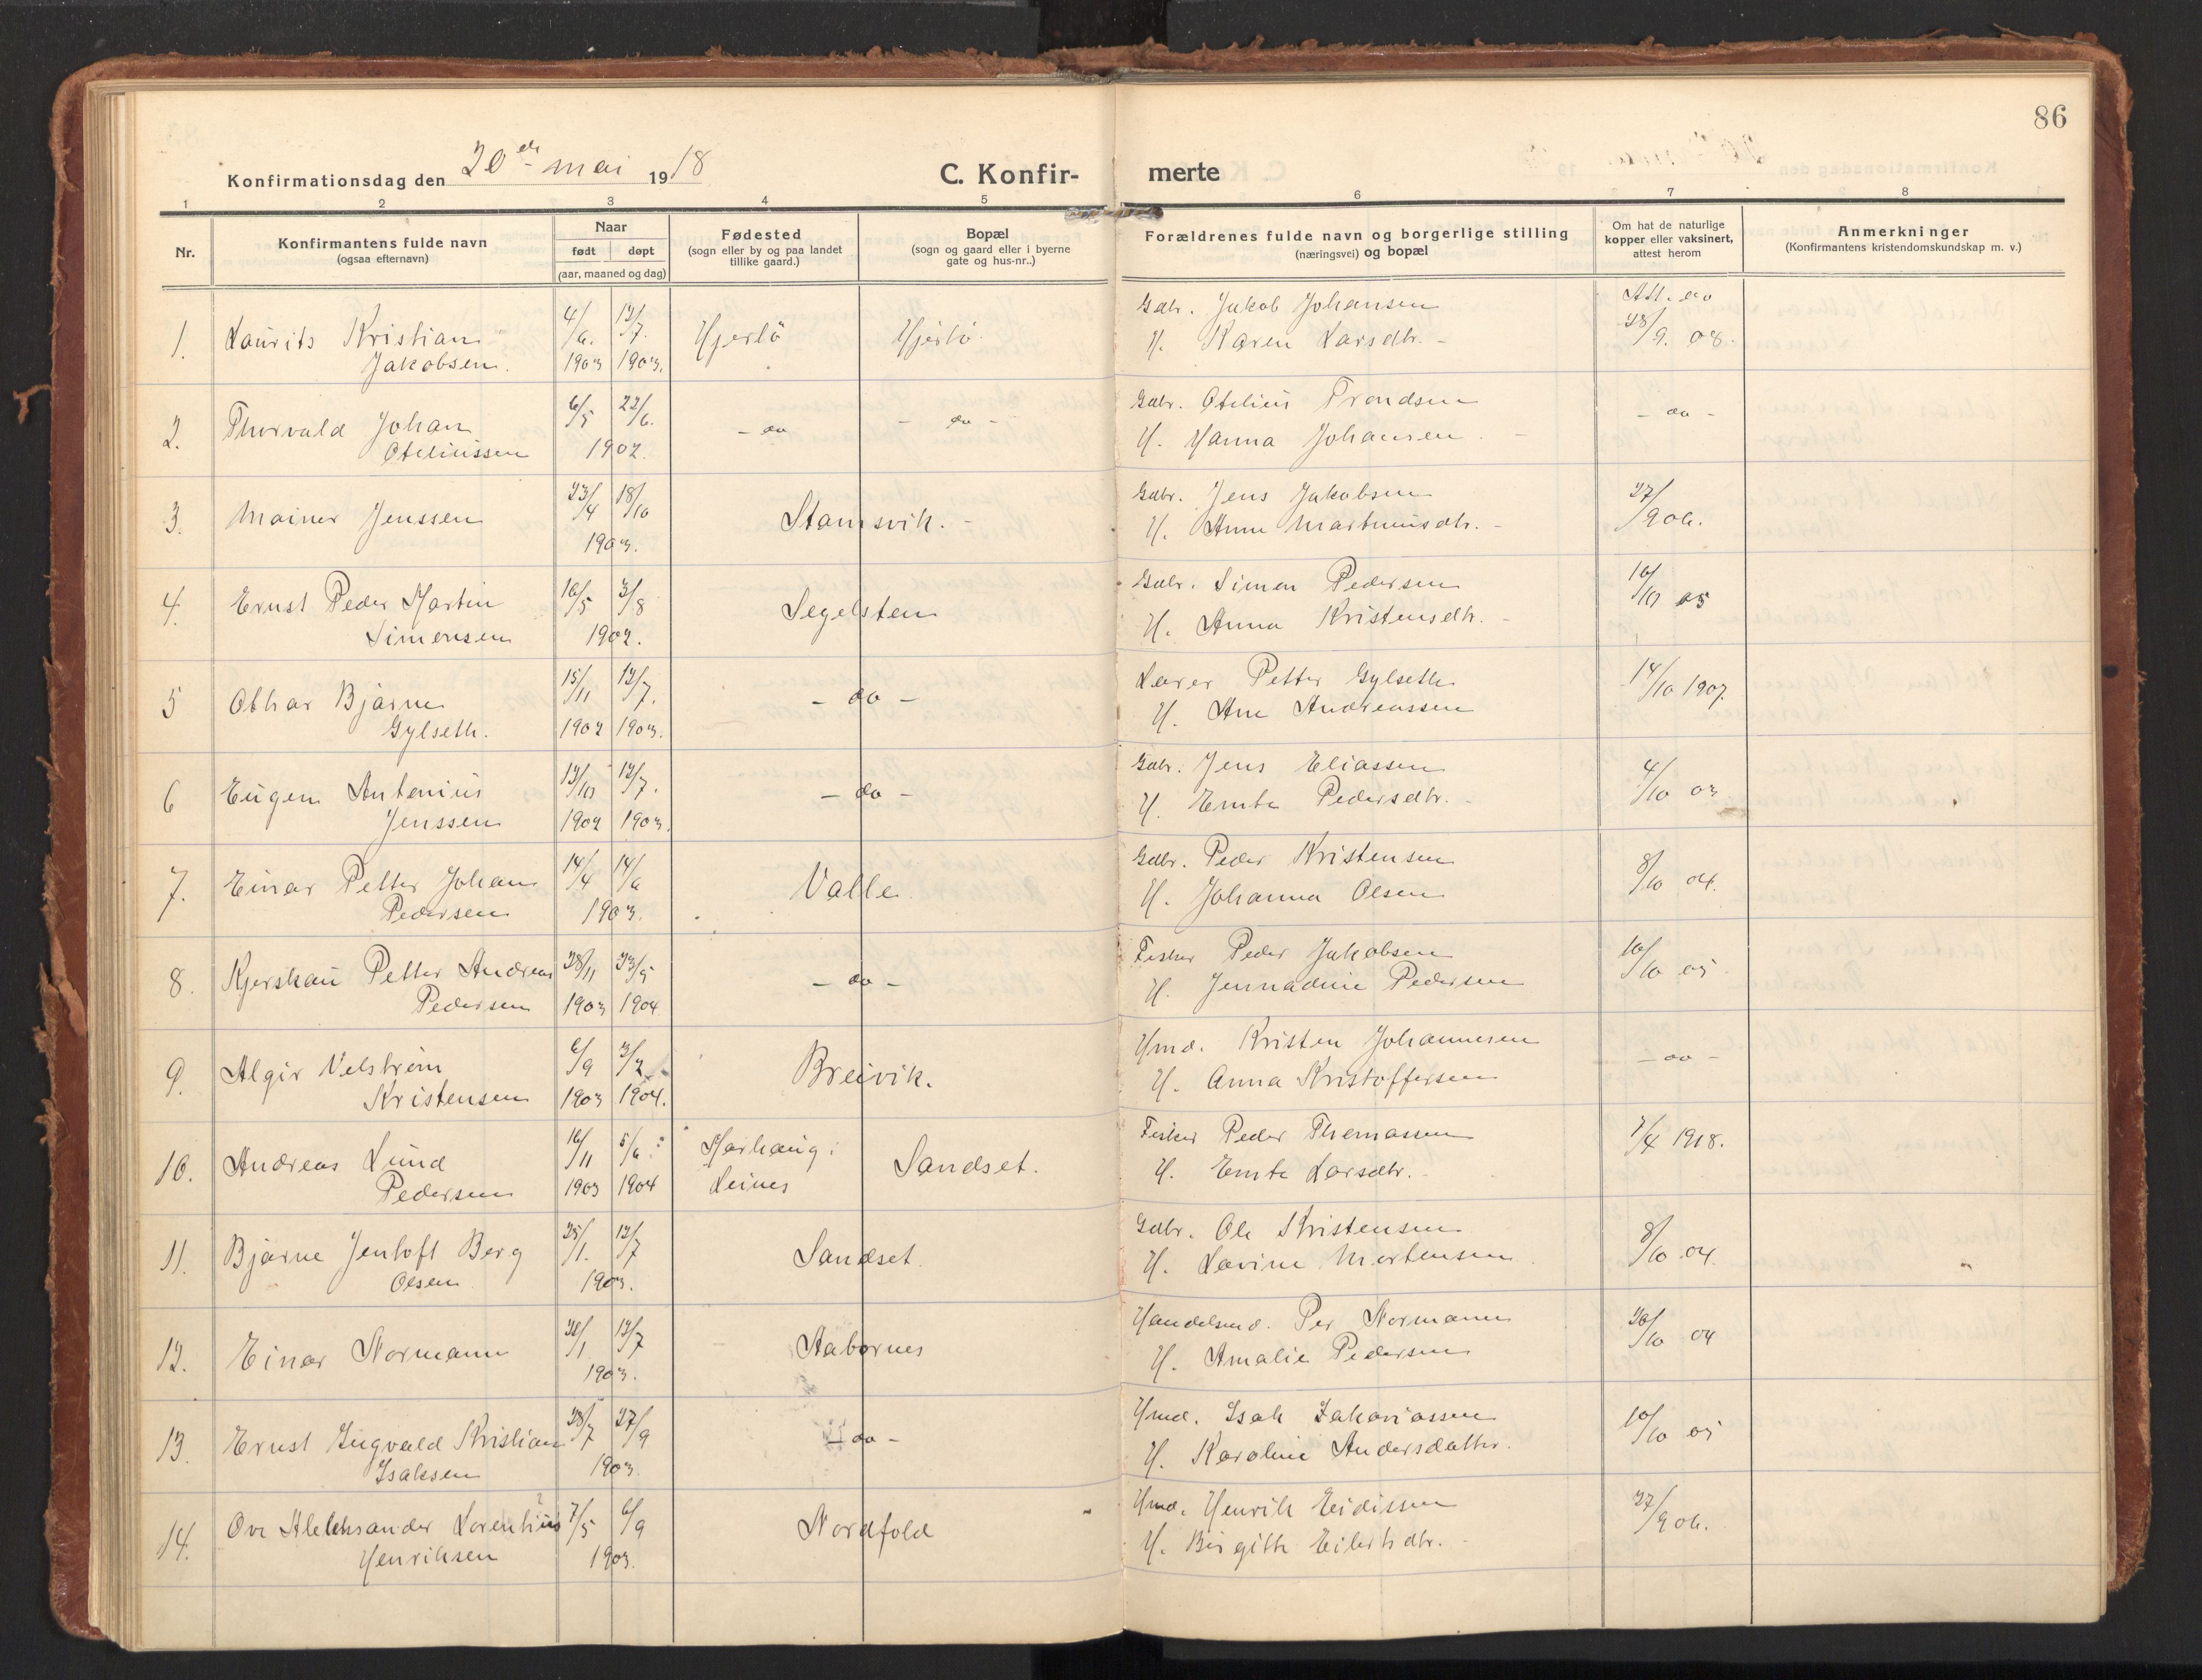 86
Konfirmationsdag den 20de mai 1918
C. Konfir-
merte
1 2 3 4 5 6 7 8
Nr.
Konfirmantens fulde navn
(ogsaa efternavn)
Naar
født døpt
(aar, maaned og dag)
Fødested
(sogn eller by og paa landet
tillike gaard.)
Bopæl
(sogn og gaard eller i byerne
gate og hus-nr..)
Forældrenes fulde navn og borgerlige stilling
(næringsvei) og bopæl
Om hat de naturlige
kopper eller vaksinert,
attest herom
Anmerkninger
(Konfirmantens kristendomskundskap m. v.)
1. Laurits Kristian 4/6. 12/7. Hjertö Hjertö Gdbr. Jakob Johansen Att. av
Jakobsen. 1903 1903. H. Karen Larsdtr. - 28/9. 08.
2. Thorvald Johan 6/5 22/6. - do - do - Gdbr. Otelius Trondsen - do -
Oteliussen 1902. H. Hanna Johansen. -
3. Mainer Jenssen 23/4 18/10 Stamsvik. - Gdbr. Jens Jakobsen 27/
1903. H. Anne Martinusdtr. - 9 06.
4. Ernst Peder Martin 16/5 3/8 Segelsten Gdbr. Simon Pedersen 10/10 05
Simonsen 1902. H. Anna Kristensdtr. -
5 Othar Bjarne 15/11 12/7. - do - Lærer Petter Gylseth 14/10 1907.
Gylseth. 1902 1903. H. Ane Andreassen
6 Eugen Antonius 13/10 12/7. - do - Gdbr. Jens Eliassen 4/10 03
Jenssen 1902 1903. H. Emte Pedersdtr. -
7. Einar Petter Johan 14/4 14/6 Valle. Gdbr. Peder Kristensen 8/10 04.
Pedersen 1903. H. Johanna Olsen
8. Kjerskau Petter Andreas 28/11 23/5 - do - Fisker Peder Jakobsen 10/10 05
Pedersen 1903 1904 H. Jennadine Pedersen
9. Algir Velström 6/9 3/2 Breivik. Hmd. Kristen Johannesen - do -
Kristensen 1903 1904. H. Anna Kristoffersen
10. Andreas Lund 16/11 5/6 : Marhaug : Sandset. Fisker Peder Thomassen 7/4 1918.
Pedersen 1903 1904 Leines H. Emte Larsdtr.
11. Bjarne Jentoft Berg 25/1. 12/7 Sandset. Gdbr. Ole Kristensen 8/10 04.
Olsen 1903. H. Lovine Mortensen
12. Einar Normann 20/1 12/7 Aabornes Handelsmd. Per Normann 20/10 04
1903. H. Amalie Pedersen
13. Ernst Ingvald Kristian 28/7 27/9 - do - Hmd. Isak Zakariassen 10/10 05
Isaksen 1903. H. Karoline Andersdatter.
14. Ove Aleksander Lorentius 7/5 6/9 Nordfold Hmd. Henrik Eidissen 27/
Henriksen 1903. H. Birgitte Eilertsdtr. 9 06.